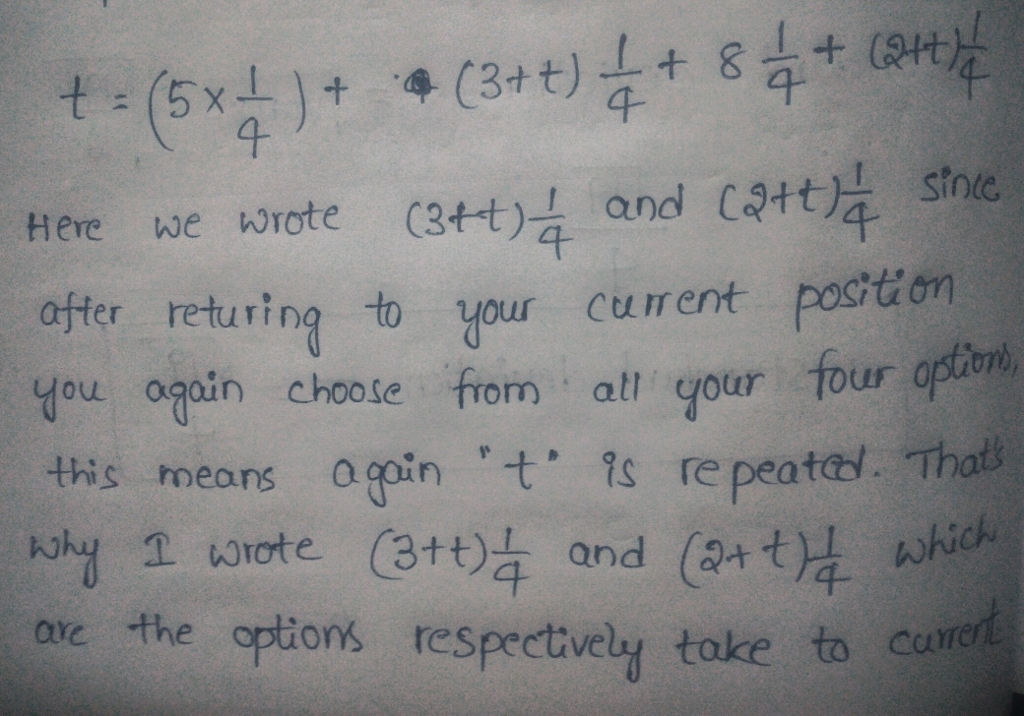 t = (5 × 1/4) + (3+t) 1/4 + 8 1/4 + (2+t) 1/4
Here we wrote (3+t) 1/4 and (2+t) 1/4 since
after returing to your current position
you again choose from all your four options,
this means again "t" is repeated. That's
why I wrote (3+t) 1/4 and (2+t) 1/4 which
are the options respectively take to current